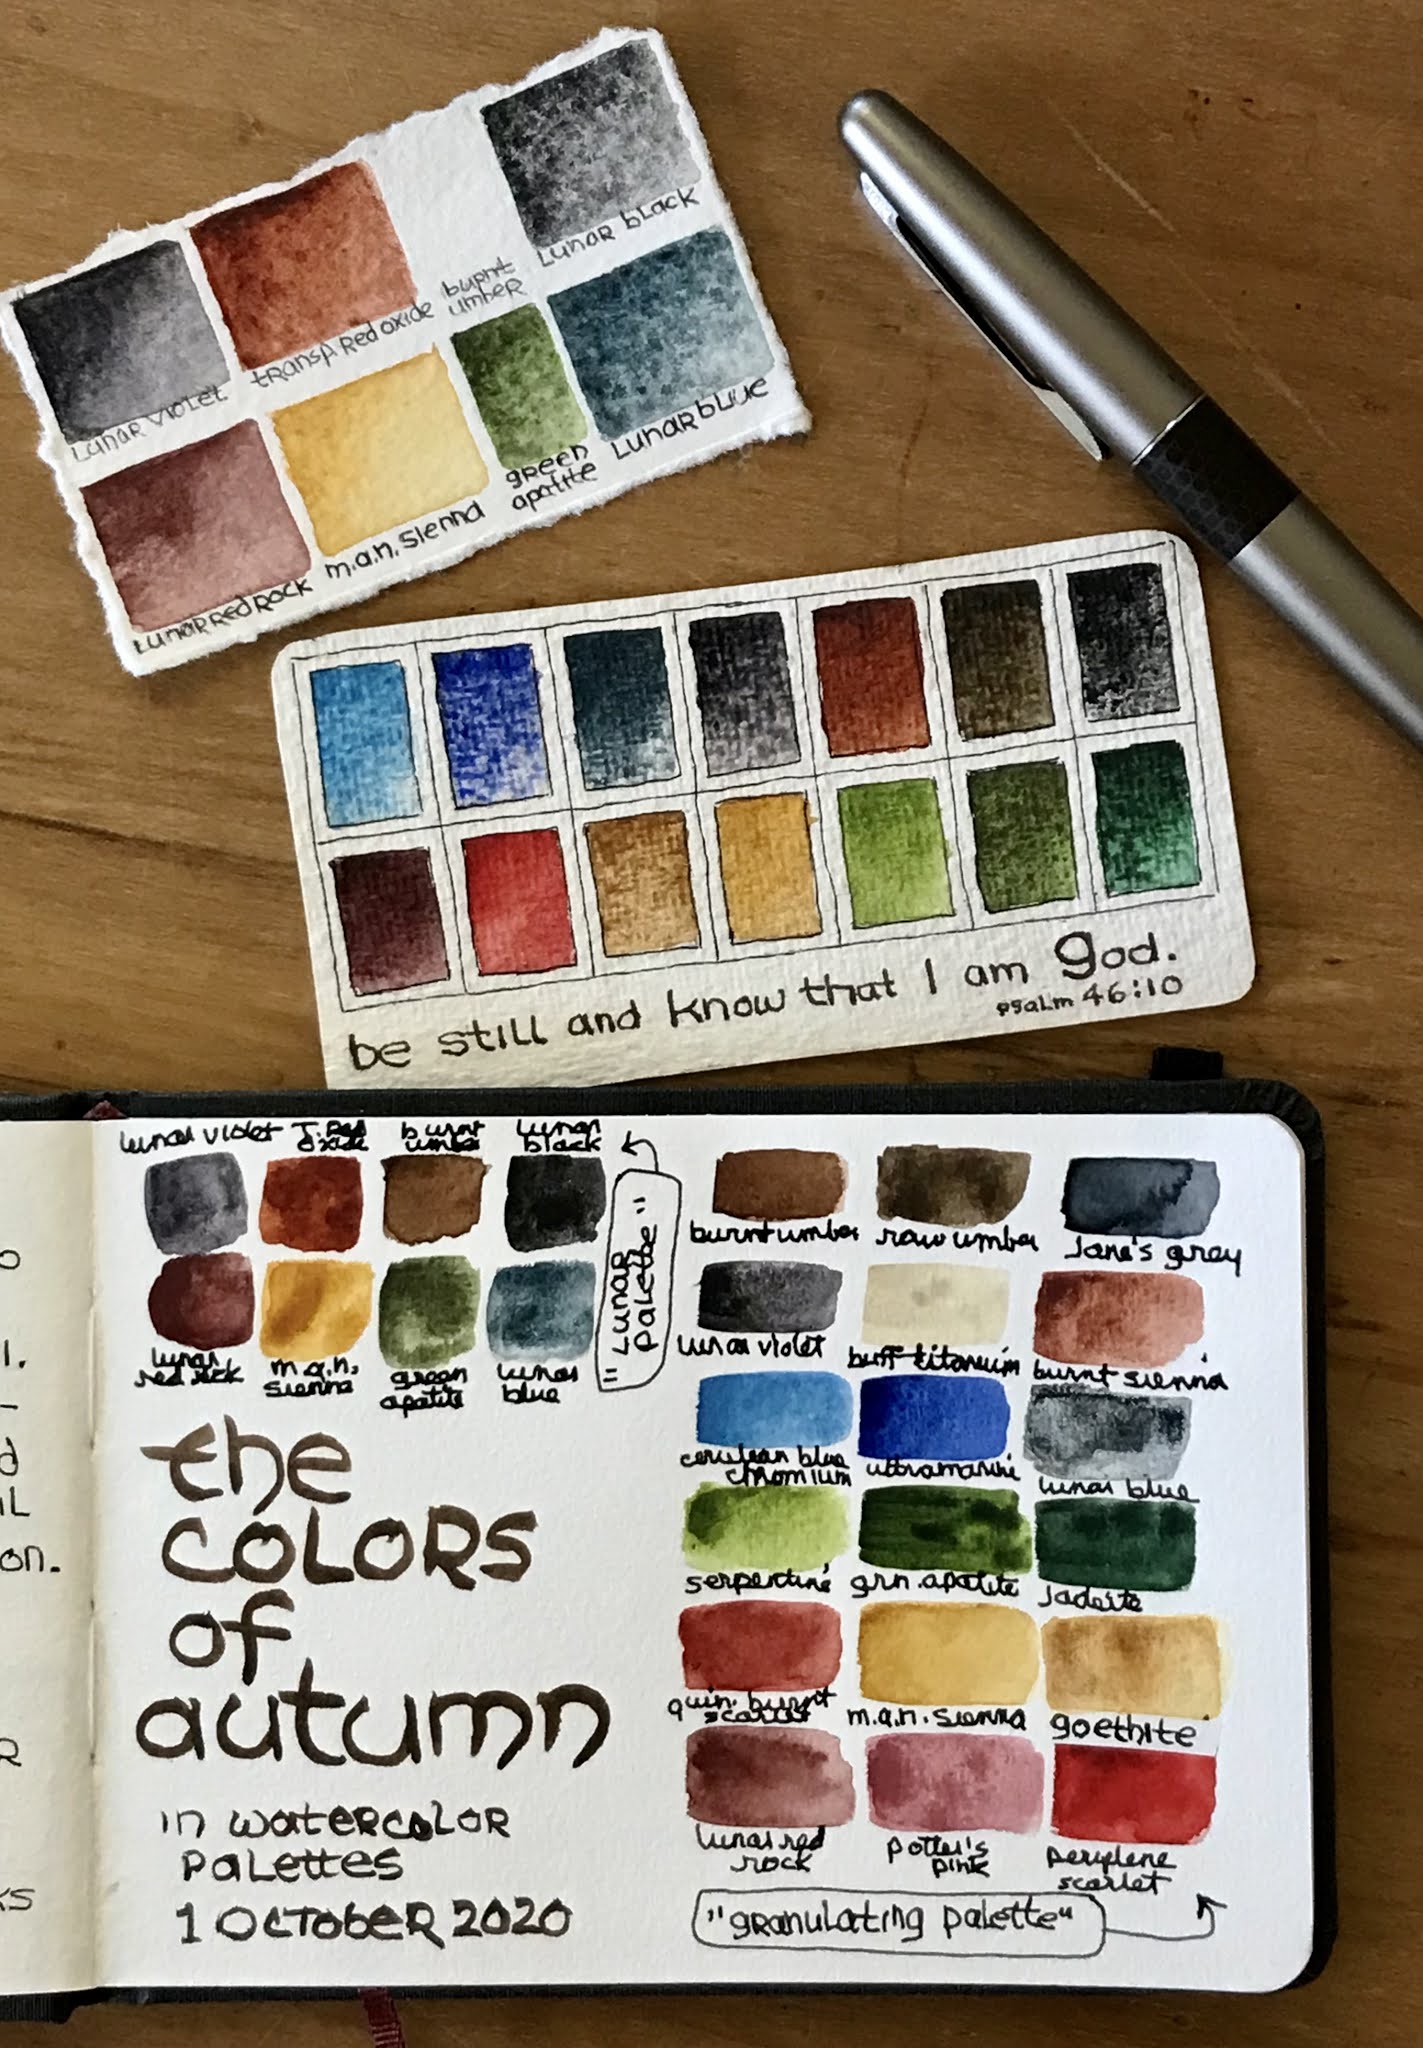 Lunar black
burnt
umber
transp. Red oxide
Lunar violet
Lunar blue
green
apatite
m.a.n. sienna
Lunar Red Rock
be still and know that I am god.
psalm 46:10
lunar violet
T. Red
oxide
burnt
umber
lunar
black
lunar
red rock
m.a.n.
sienna
green
apatite
lunar
blue
"Lunar
palette"
the
colors
of
autumn
in watercolor
palettes
1 October 2020
burnt umber
raw umber
Jane's grey
lunar violet
buff titanium
burnt sienna
cerulean blue
chromium
ultramarine
lunar blue
serpentine
grn. apatite
Jadeite
quin. burnt
scarlet
m.a.n. sienna
goethite
lunar red
rock
potter's
pink
perylene
scarlet
"granulating palette"
on.